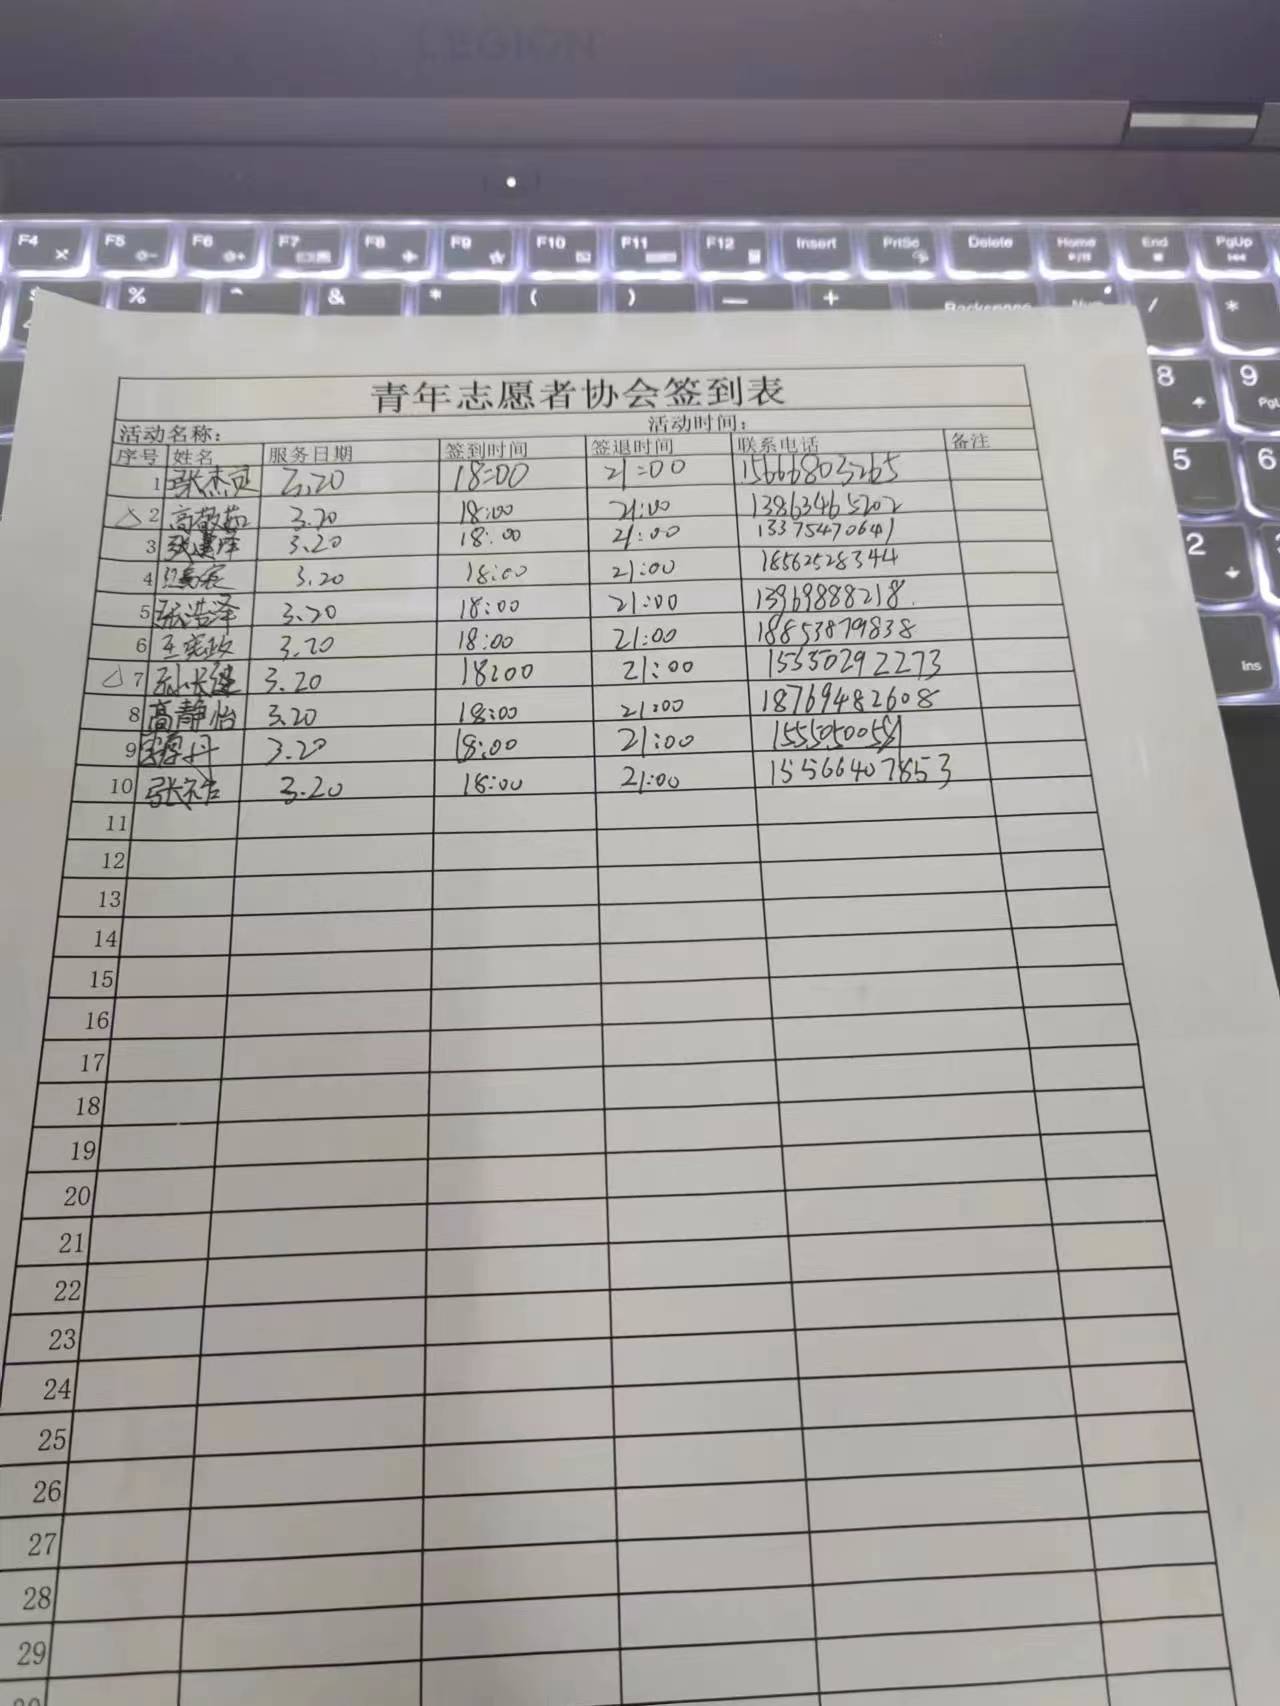 LEGION
F4 F5 F6 F7 F8 F9 F10 F11 F12 Insert PrtSc Delete Home End PgUp
% ^ & * ( ) — + Backspace Num / *
8 9 PgU
5 6
2
Ins
青年志愿者协会签到表
活动名称: 活动时间:
序号 姓名 服务日期 签到时间 签退时间 联系电话 备注
1 3.20 18:00 21:00 15666803265
△ 2 高敬茹 3.20 18:00 21:00 13863465202
3 3.20 18:00 21:00 13375470641
4 3.20 18:00 21:00 18562528344
5 张浩泽 3.20 18:00 21:00 13969888218
6 王宪政 3.20 18:00 21:00 18853879838
△ 7 3.20 18:00 21:00 15550292273
8 高静怡 3.20 18:00 21:00 18769482608
9 3.20 18:00 21:00
10 3.20 18:00 21:00 15566407853
11
12
13
14
15
16
17
18
19
20
21
22
23
24
25
26
27
28
29